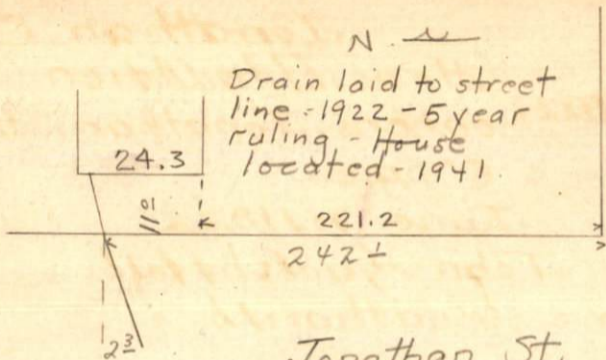 N
Drain laid to street
line - 1922 - 5 year
ruling - House
located - 1941
24.3
221.2
242±
Jonathan St.